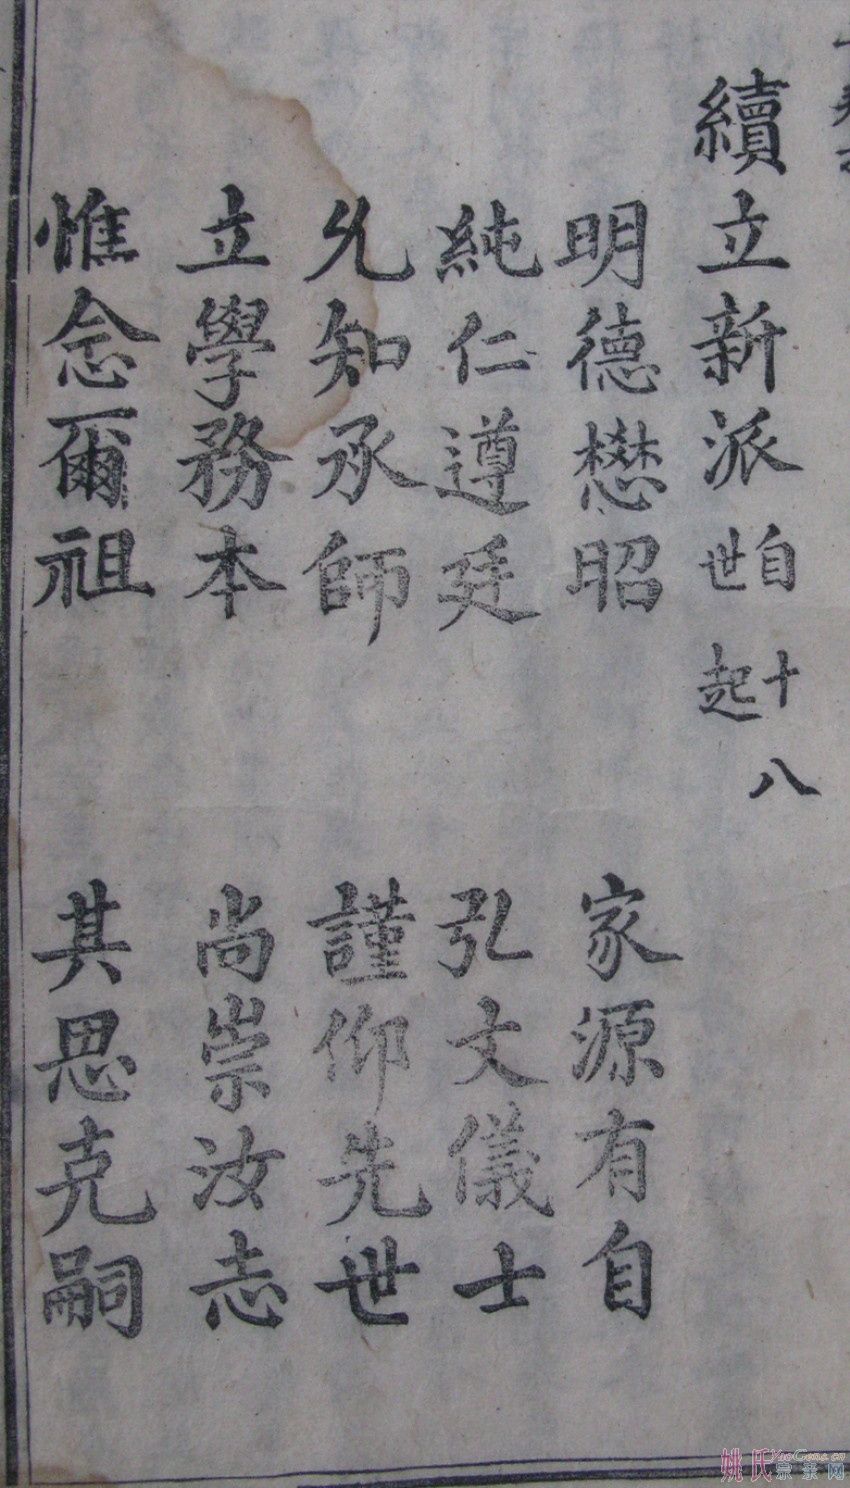 續立新派自十八世起
明德懋昭 家源有自
純仁遵廷 弘文儀士
允知承師 謹仰先世
立學務本 尚崇汝志
惟念爾祖 其思克嗣
姚氏宗亲网
YaoGens.cn